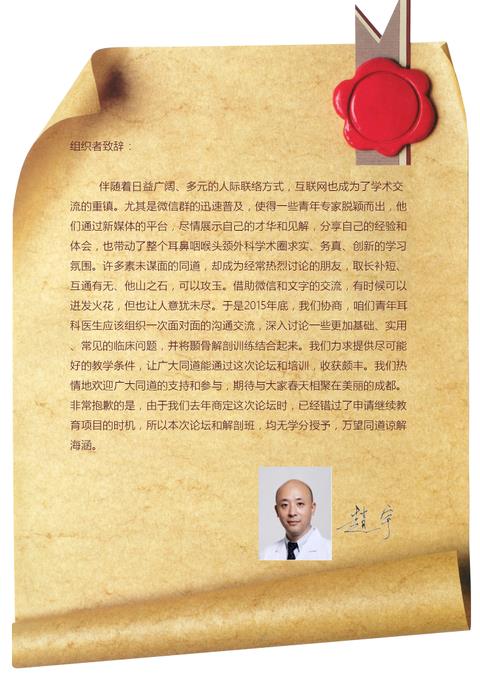 组织者致辞：
伴随着日益广阔、多元的人际联络方式，互联网也成为了学术交
流的重镇。尤其是微信群的迅速普及，使得一些青年专家脱颖而出，他
们通过新媒体的平台，尽情展示自己的才华和见解，分享自己的经验和
体会，也带动了整个耳鼻咽喉头颈外科学术圈求实、务真、创新的学习
氛围。许多素未谋面的同道，却成为经常热烈讨论的朋友，取长补短、
互通有无、他山之石，可以攻玉。借助微信和文字的交流，有时候可以
迸发火花，但也让人意犹未尽。于是2015年底，我们协商，咱们青年耳
科医生应该组织一次面对面的沟通交流，深入讨论一些更加基础、实用
、常见的临床问题，并将颞骨解剖训练结合起来。我们力求提供尽可能
好的教学条件，让广大同道能通过这次论坛和培训，收获颇丰。我们热
情地欢迎广大同道的支持和参与，期待与大家春天相聚在美丽的成都。
非常抱歉的是，由于我们去年商定这次论坛时，已经错过了申请继续教
育项目的时机，所以本次论坛和解剖班，均无学分授予，万望同道谅解
海涵。
赵宇